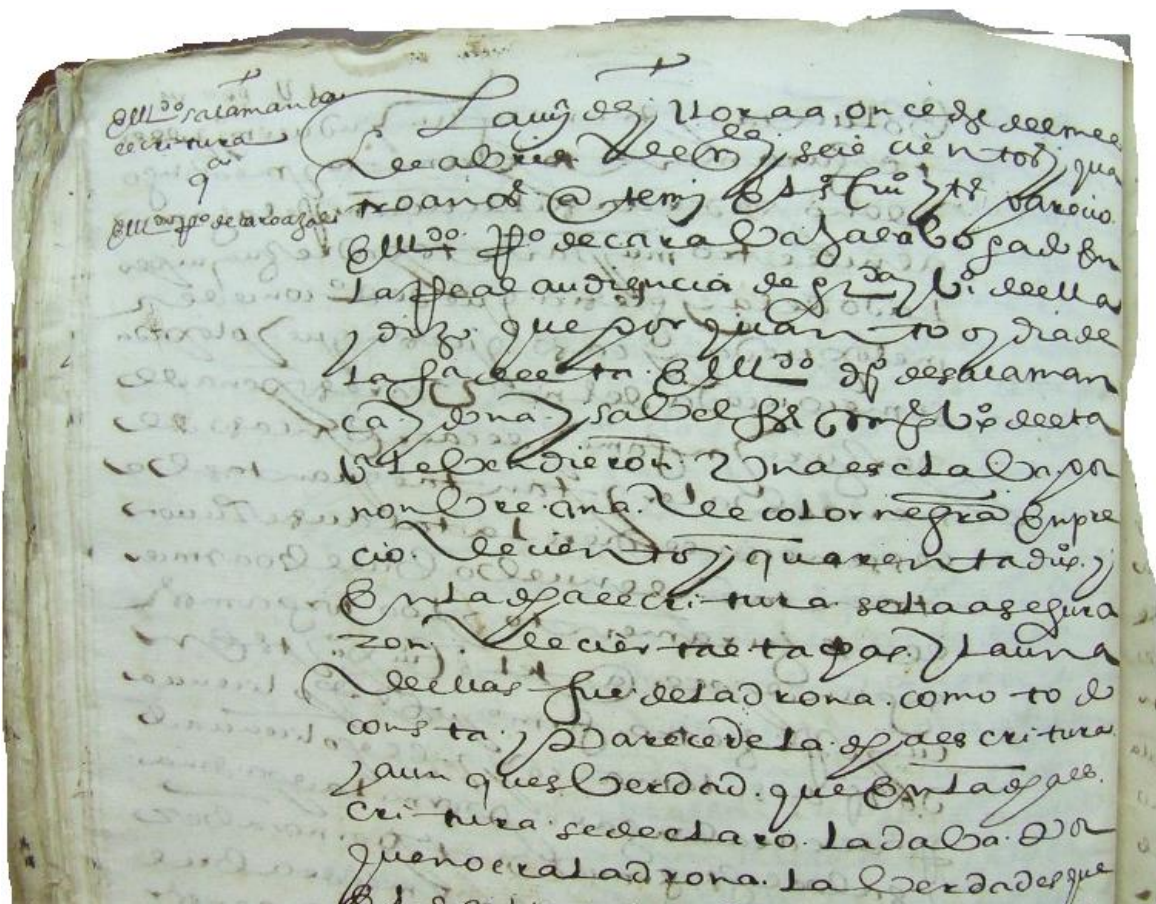 El Ldo salamanca
escritura
a
El Ldo po de carbajal
En La villa de yllora a once dias del mes
de abrill de mill y seis cientos y qua
tro anos ante mi El sno y to parecio
El Ldo po de carabajal abogado En
La Real audiencia de grda y vo della
y dixo que por quanto oy dia de
La fha desta El Ldo do de salaman
ca y dona ysabel su muger vos desta
va le bendieron una esclaba por
nonbre ana de color negra En pre
cio de ciento y quarenta dus y
En La dha escritura se La asegura
ron de ciertas tachas y La una
dellas fue de Ladrona como todo
consta y parece de La dha escritura
y aunques berdad que En La dha es
critura se declaro La daba por
que no era Ladrona La berdad es que